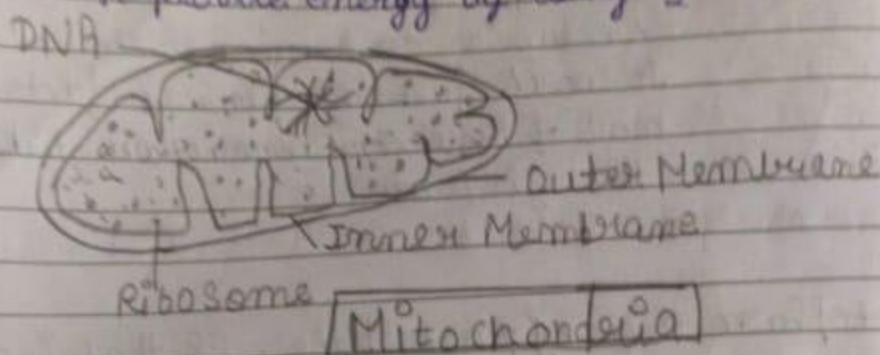 energy by
DNA
Outer Membrane
Inner Membrane
Ribosome
Mitochondria